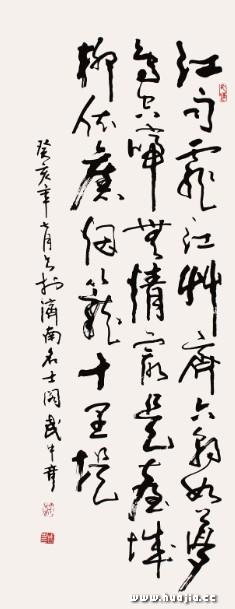 江雨霏霏江艸齊六朝如夢
鳥空啼無情最是臺城
柳依舊烟籠十里堤
癸亥年七月書於濟南名士閣武中奇
www.huajia.cc